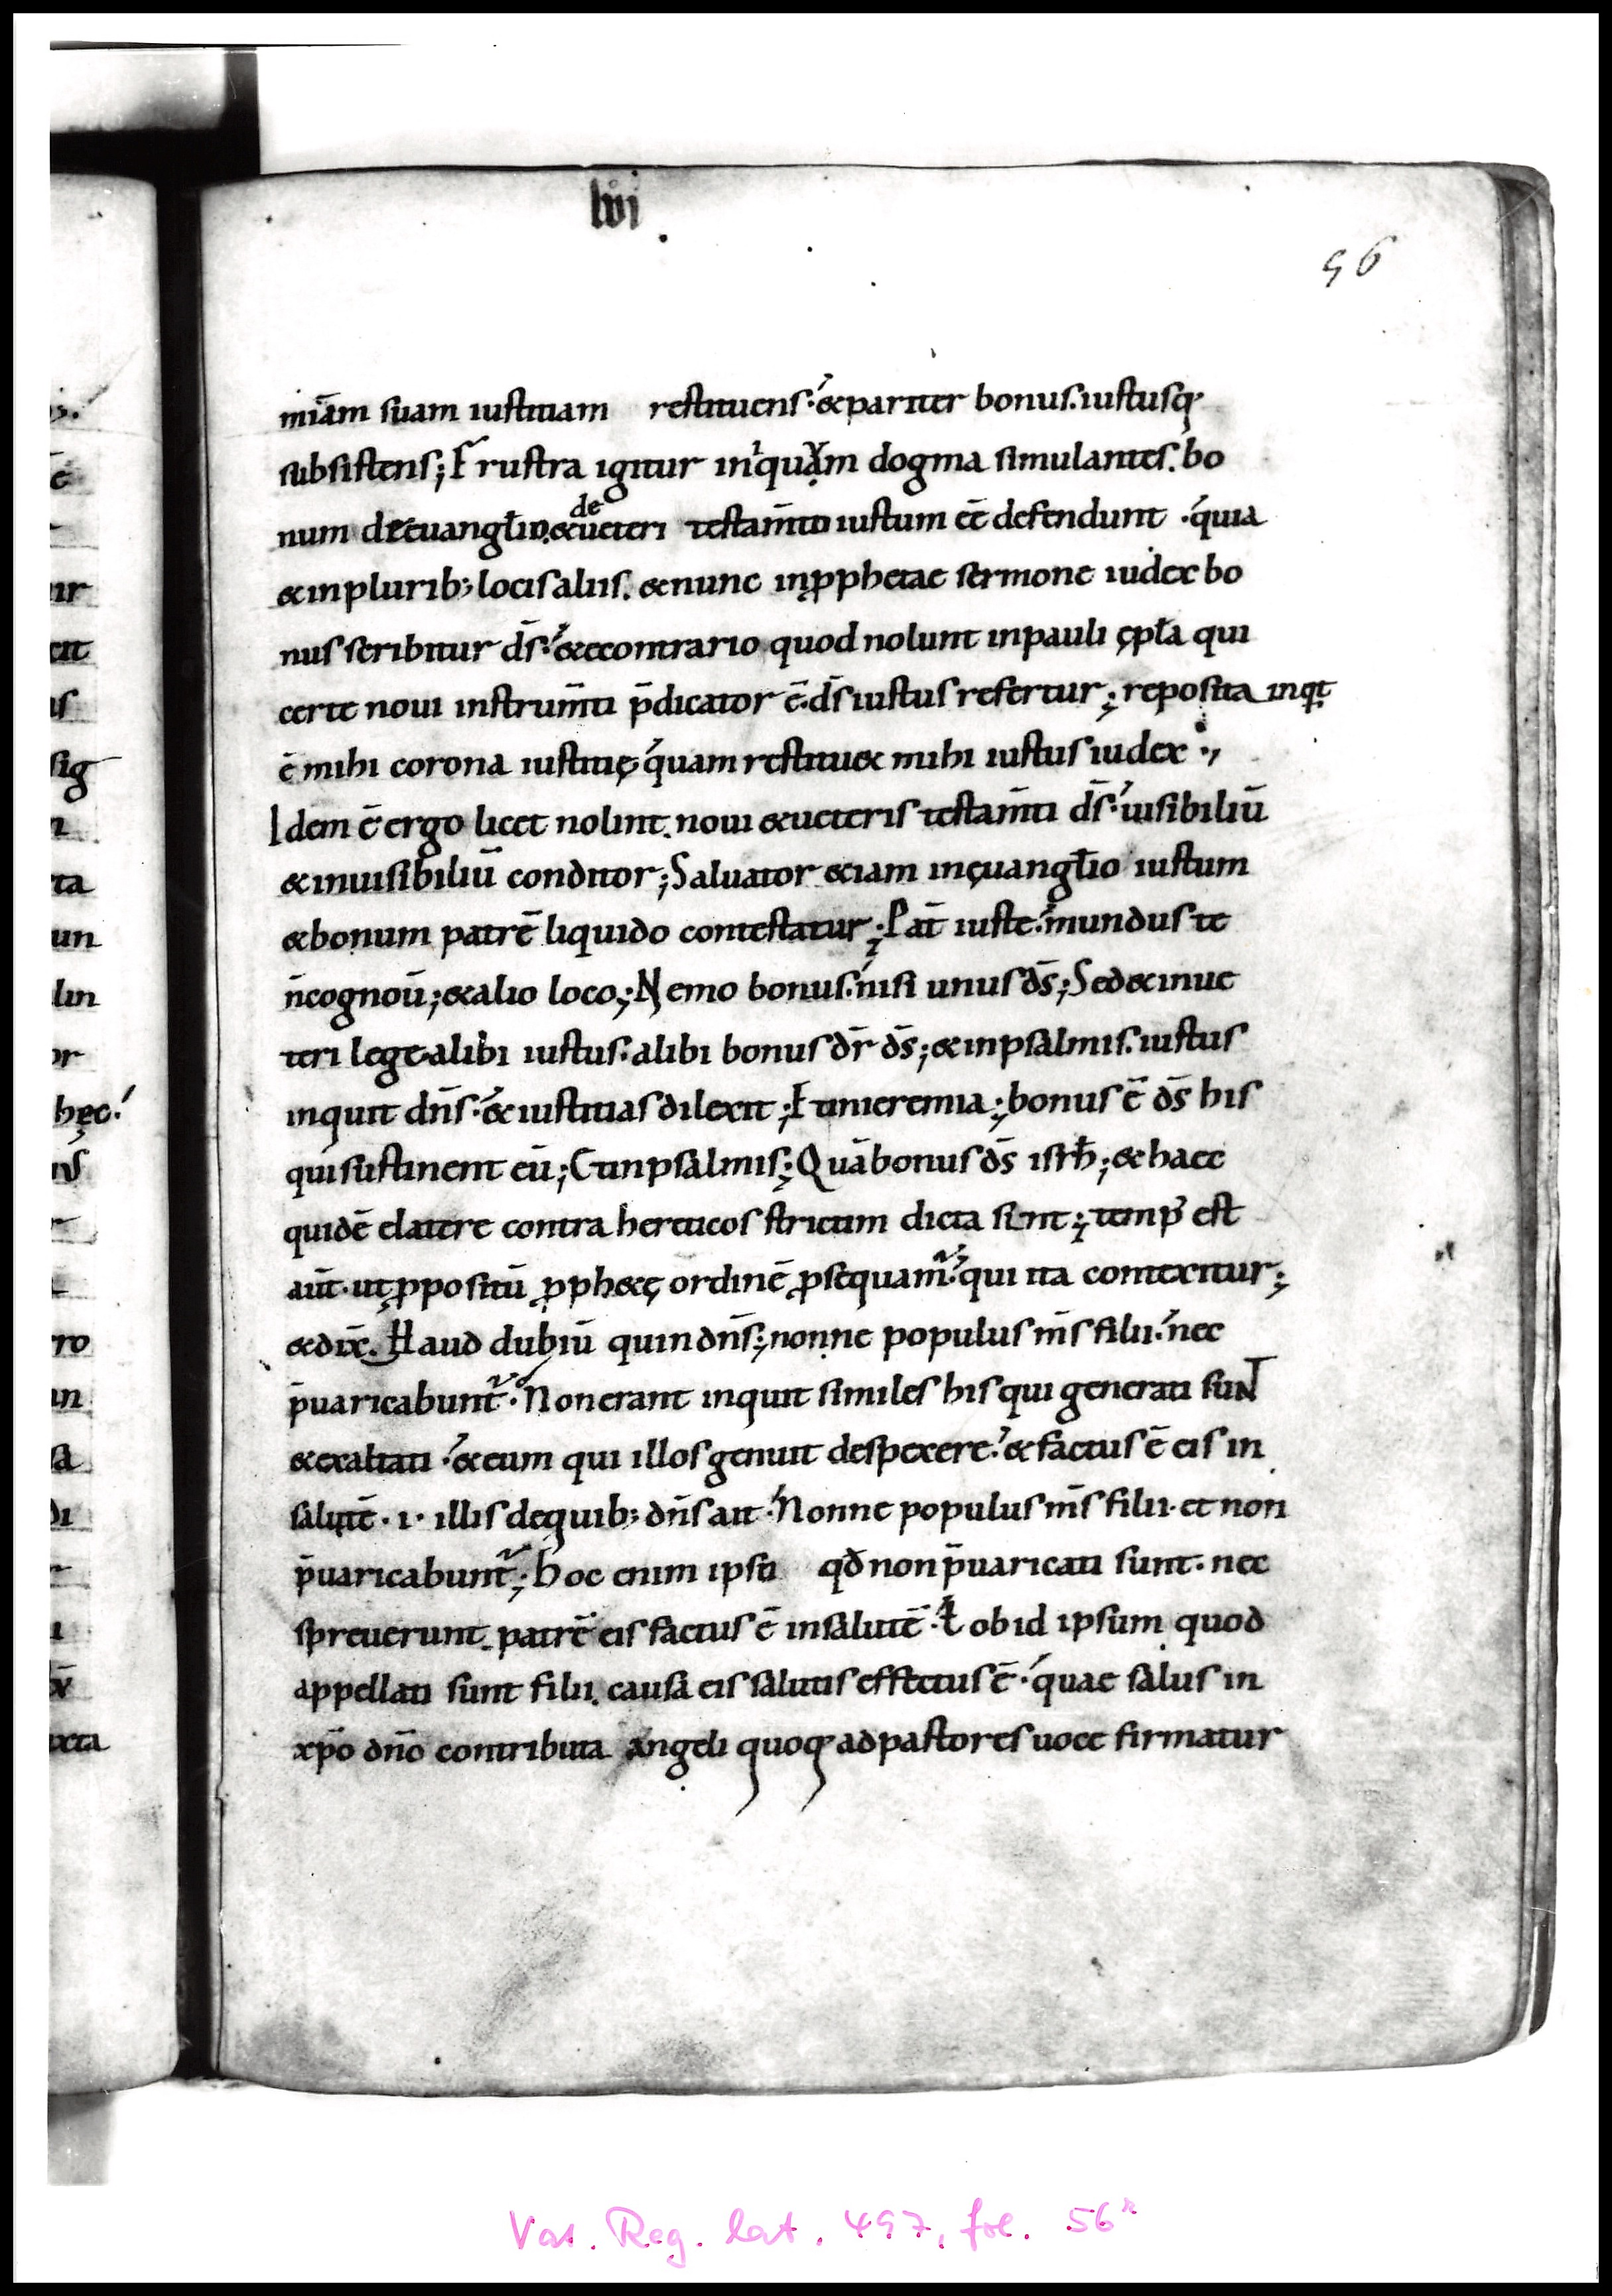 lvi
56
miā̄m suam iustitiam restituens. &pariter bonus. iustusq;
subsistens; Frustra igitur iniquā̄m dogma simulantes. bo
num de euangł̄io. &de ueteri testam̄to iustum eē defendunt. quia
&inplurib; locis aliis. &nunc inp̱phetae sermone iudex bo
nus scribitur d̄s. &econtrario quod nolunt inpauli ępł̄a qui
certe noui instrum̄ti p̄dicator ē. d̄s iustus refertur; reposita inqt
ē mihi corona iustitię quam restitu& mihi iustus iudex.,
Idem ē ergo licet nolint. noui &ueteris testam̄ti d̄s. uisibiliū
&inuisibiliū conditor; Saluator &iam inęuangł̄io iustum
&bonum patrē liquido contestatur; Pat̄ iuste. mundus te
n̄cognoū; &alio loco; Nemo bonus. nisi unus d̄s; Sed&inue
teri lege alibi iustus. alibi bonus d̄r d̄s; &inpsalmis. iustus
inquit dn̄s. &iustitias dilexit; Etinieremia; bonus ē d̄s his
qui sustinent eū; Etinpsalmis; Quābonus d̄s isrł̄; &haec
quidē elatere contra hereticos strictim dicta sint; temp' est
aūt. utp̱positū p̱ph&ę ordinē p̱sequam̄. qui ita contexitur;
&dix̄. Haud dubiū quindn̄s; nonne populus m̄s filii. nec
p̄uaricabunt̄. Nonerant inquit similes his qui generati suNT
&exaltati. &eum qui illos genuit despexere. &factus ē eis in
salutē. i. illis dequib; dn̄s ait. Nonne populus m̄s filii. et non
p̄uaricabunt̄; Hoc enim ipso qđ non p̄uaricati sunt. nec
spreuerunt patrē eis factus ē insalutē. ł ob id ipsum quod
appellati sunt filii. causa eis salutis effectus ē. quae salus in
xp̄o dn̄o contributa angeli quoq; adpastores uoce firmatur
Vat. Reg. lat. 497, fol. 56r